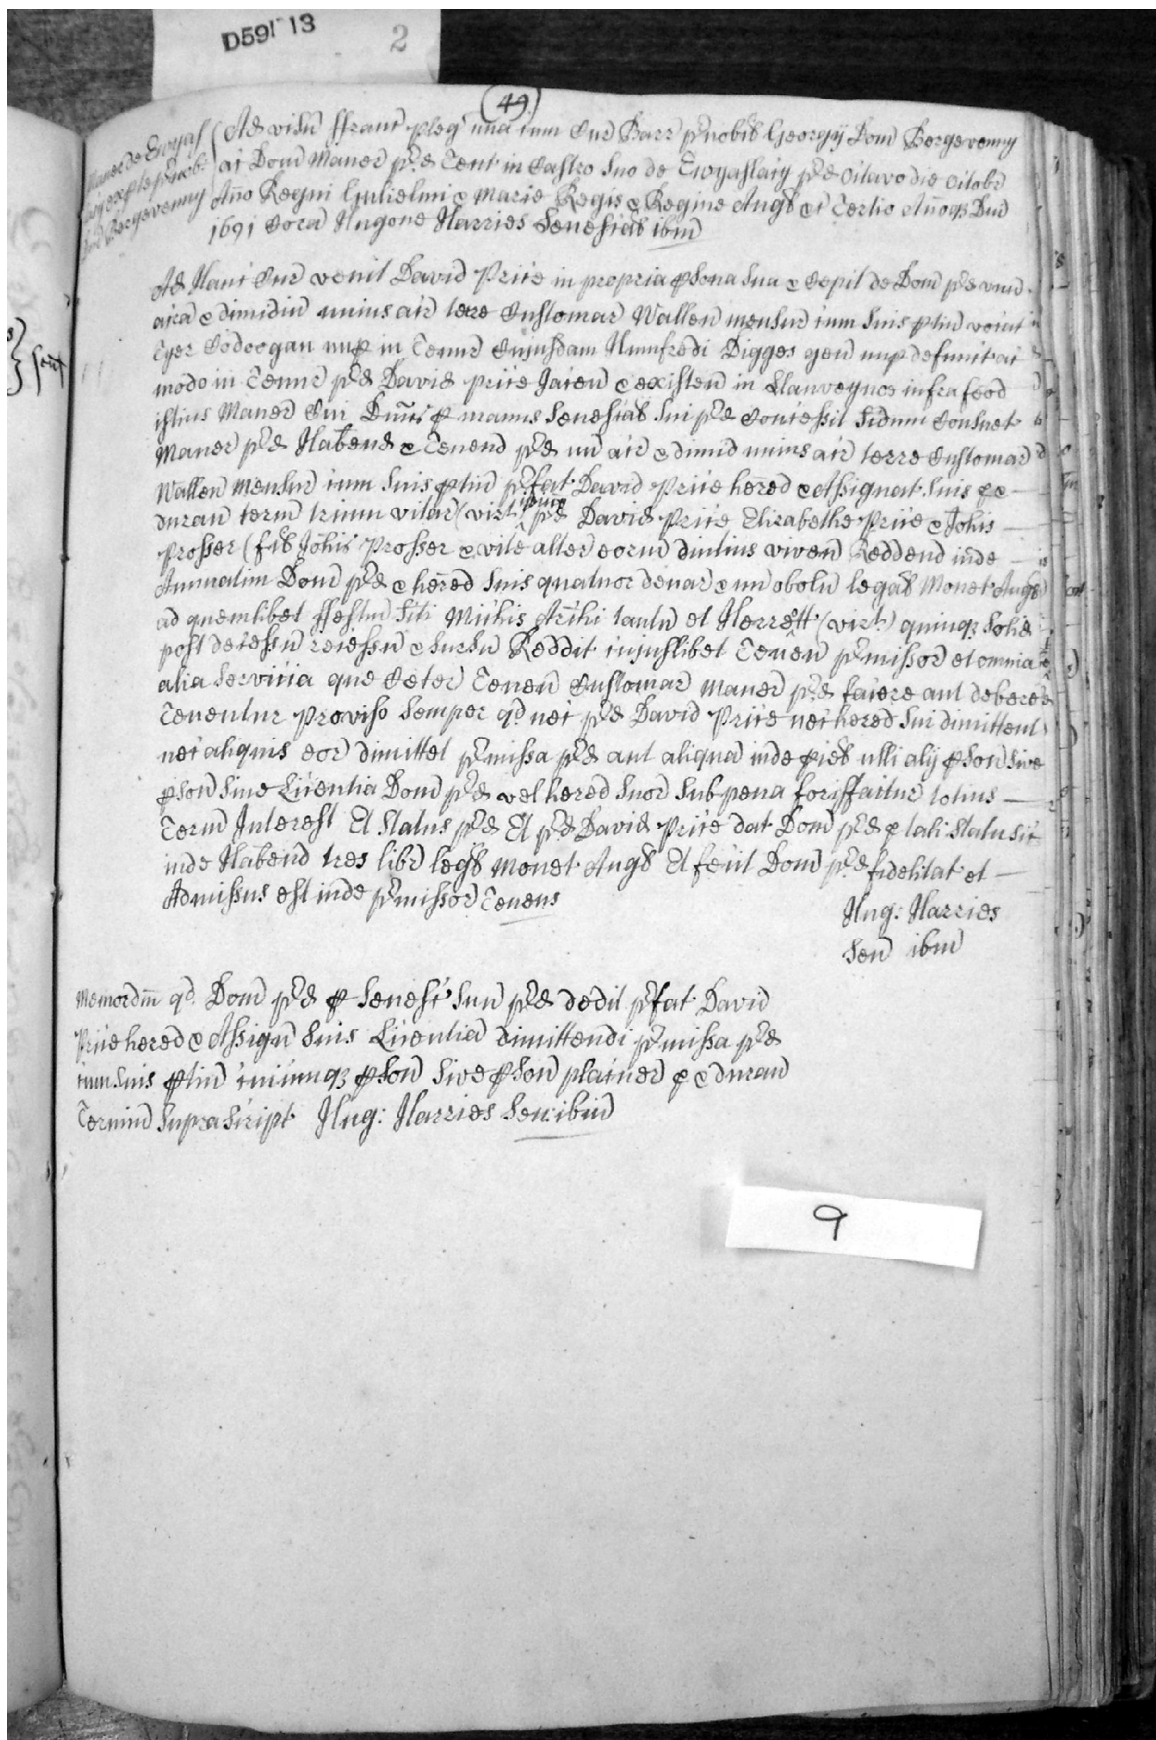 D591 13
2
49
Maner de Ewyas
Bergevenny
Ad visu ffranc pleg una cum Cur Barr prnobis Georgij Dom Bergevenny
ac Dom Maner prd Tent in Castro suo de Ewyaslacy prd Octavo die Octobr
Año Regni Gulielmi & Marie Regis & Regine Angl &c Tertio Añoqз Dni
1691 Cora Hugone Harries Senescał ibm
Ad Hanc Cur venit David Price in propria psona sua & Cepit de Dom prd una
acra & dimidiu unius acr terre Customar Wallen mensur cum suis ptin vocat
Tyer Codoogan nup in Tenur Cujusdam Humfredi Digges gen nup defunct ac
modo in Tenur prd David Price Jacen & existen in Llanveynoe infra feod
istius Maner Cui Dnus p manus Senescał sui prd Concessit Sedum Consuet
Maner prd Habend & Tenend prd un acr & dimid unius acr terre Customar
Wallen mensur cum suis ptin prfat David Price hered & Assignat suis p &
duran term trium vitar (virt) ipsius prd David Price Elizabethe Price & Johis
Prosser (fil Johis Prosser & vite alter eorum diutius viven Reddend inde
Annuatim Dom prd & hered suis quatuor denar & un obolu legal Monet Angl
ad quemlibet ffestu Sti Michis Archi tantu et Herrett (virt) quinqз Solid
post decessu recessu & sursu Reddit cujuslibet Tenen prmissor et omnia
alia Servicia que Ceter Tenen Customar maner prd facere aut debere
Tenentur Proviso Semper qd nec prd David Price nec hered sui dimittent
nec aliquis eor dimittet prmissa prd aut aliqua inde pcel ulli alij pson sive
pson sine Licentia Dom prd vel hered suor sub pena forisffactur totius
Term Interest Et Status prd Et prd David Price dat Dom prd p tali statu sic
inde Habend tres libr legl monet Angl Et fecit Dom prd fidelitat et
Admissus est inde prmissor Tenens
Hug: Harries
Sen ibm
Memordm qd Dom prd p Senesc sun prd dedit prfat David
Price hered & Assign suis Licentia dimittendi prmissa prd
cum suis ptin cuicunqз pson sive pson placuer p & duran
Termin supra script Hug: Harries Sen: ibm
9